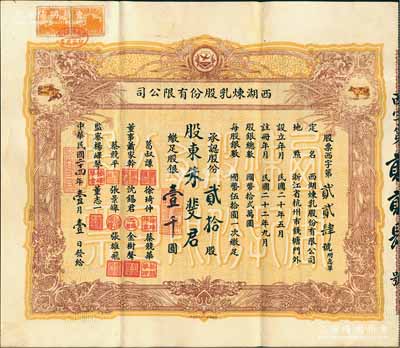 西湖煉乳股份有限公司
股票西字第貳貳肆號
定名 西湖煉乳股份有限公司
地點 浙江省杭州市錢塘門外
設立年月 民國二十年五月
註冊年月 民國二十二年九月
股銀總數 國幣拾貳萬圓
每股銀數 國幣伍拾圓一次繳足
承認股份貳拾股
股東 斐君
繳足股銀壹千圓
董事
葛叔謙
徐椅仲
蔡競平
張景鐘
沈錫君
金樹聲
董志一
張雄飛
監察
中華民國二十四年壹月壹日發給